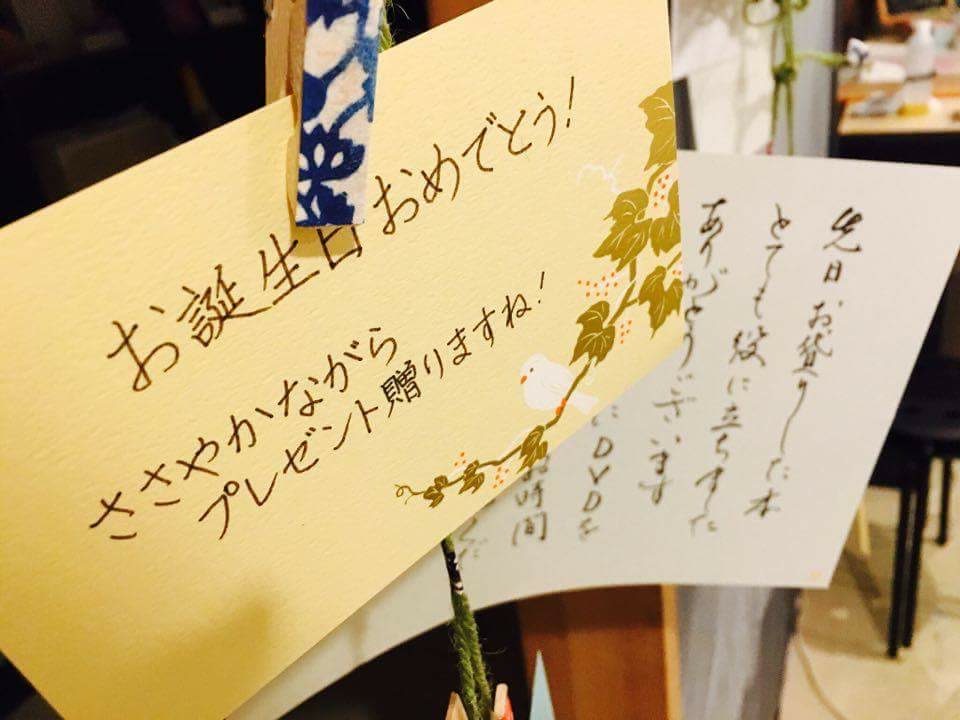 お誕生日おめでとう!
ささやかながら
プレゼント贈りますね!
先日お貸りした本
とても役に立ちました
ありがとうございます
にDVDを
時間